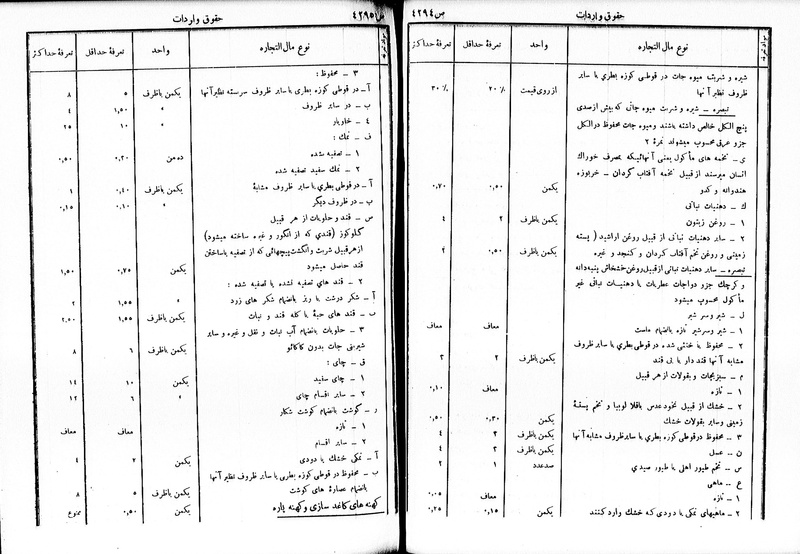 حقوق واردات
ص ٤٢٩٤
نوع مال التجاره
واحد
تعرفهٔ حداقل
تعرفهٔ حداکثر
شیره و شربت میوه جات در قوطی کوزه بطری یا سایر
ظروف نظیر آنها
از روی قیمت
٪ ۲۰
٪ ۳۰
تبصره ــ شیره و شربت میوه جاتی که بیش از صدی
پنج الکل خالص داشته باشند و میوه جات محفوظ در الکل
جزو عرق محسوب میشوند نمرهٔ ۲
ی ــ تخمه های مأکول یعنی آنهائیکه بمصرف خوراک
انسان میرسند از قبیل تخمه آفتاب گردان ــ خربوزه
هندوانه و کدو
یکمن
۰٫۵۰
۰٫۷۰
ك ــ دهنیات نباتی
۱ ــ روغن زیتون
یکمن باظرف
۲
٤
۲ ــ سایر دهنیات نباتی از قبیل روغن اراشید ( پسته
زمینی و روغن تخم آفتاب کردان و کنجد و غیره
یکمن باظرف
۰٫۵۰
تبصره ــ سایر دهنیات نباتی از قبیل روغن خشخاش پنبه دانه
و کرچك جزو دواجات عطریات یا دهنیات نباتی غیر
مأکول محسوب میشود
ل ــ شیر و سر شیر
۱ ــ شیر و سر شیر تازه بانضمام ماست
معاف
معاف
۲ ــ محفوظ یا خشی شده در قوطی بطری یا سایر ظروف
مشابه آنها قند دار یا بی قند
یکمن باظرف
۲
۳
م ــ سبزیجات و بقولات از هر قبیل
۱ ــ تازه
معاف
۰٫۱۰
۲ ــ خشك از قبیل نخود عدس باقلا لوبیا و تخم پستهٔ
زمینی و سایر بقولات خشك
یکمن
۰٫۳۰
۰٫۵۰
۳ ــ محفوظ در قوطی کوزه بطری یا سایر ظروف مشابه آنها
یکمن باظرف
۳
٤
ن ــ عسل
یکمن باظرف
۲
٤
س ــ تخم طیور اهلی یا طیور صیدی
صد عدد
۱
۲
ع ــ ماهی
۱ ــ تازه
معاف
۰٫۰۵
۲ ــ ماهیهای نمکی یا دودی که خشك وارد کنند
یکمن
۰٫۱۵
۰٫۲۵
حقوق واردات
ص ٤٢٩٥
نوع مال التجاره
واحد
تعرفهٔ حداقل
تعرفهٔ حداکثر
۳ ــ محفوظ :
آ ــ در قوطی کوزه بطری یا سایر ظروف سربسته نظیر آنها
یکمن باظرف
۵
۸
ب ــ در سایر ظروف
»
۱٫۵۰
٤
٤ ــ خاویار
»
۱۰
۲۵
ف ــ نمك :
۱ ــ تصفیه نشده
ده من
۰٫۲۰
۰٫۵۰
۲ ــ نمك سفید تصفیه شده
آ ــ در قوطی بطری یا سایر ظروف مشابهٔ
یکمن باظرف
۰٫٤۰
۱
ب ــ در ظروف دیگر
»
۰٫۱۰
۰٫۱۵
س ــ قند و حلویات از هر قبیل
گلوکوز (قندی که از انگور و غیره ساخته میشود)
از هر قبیل شربت و انگشت پیچهائی که از تصفیه یا ساختن
قند حاصل میشود
یکمن
۰٫۷۵
۱٫۵۰
۲ ــ قند های تصفیه نشده یا تصفیه شده :
آ ــ شکر درشت یا ریز بانضمام شکر های زرد
»
۱٫۵۵
۲
ب ــ قند های حبهٔ یا کله قند و نبات
یکمن باظرف
۱٫۵۵
۲٫۰۰
۳ ــ حلویات بانضمام آب نبات و نقل و غیره و سایر
شیرینی جات بدون کاکائو
یکمن باظرف
٦
۸
ق ــ چای :
۱ ــ چای سفید
یکمن
۱۰
۱٤
۲ ــ سایر اقسام چای
»
٦
۱۲
ر ــ گوشت بانضمام گوشت شکار
۱ ــ تازه
معاف
معاف
۲ ــ سایر اقسام
آ ــ نمکی خشك یا دودی
یکمن
۲
٤
ب ــ محفوظ در قوطی کوزه بطری یا سایر ظروف نظیر آنها
بانضمام عصارهٔ های گوشت
یکمن باظرف
۵
۸
کهنه های کاغذ سازی و کهنه پاره
یکمن
۰٫۵۰
ممنوع